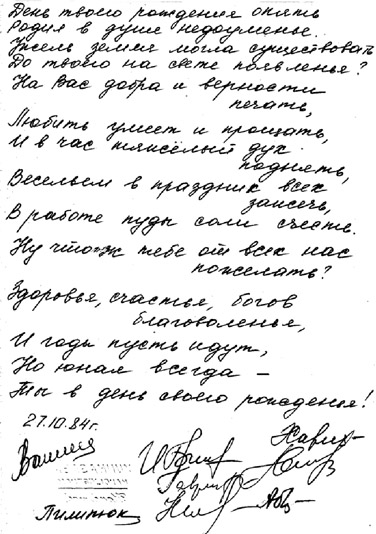 День твоего рождения опять
Родил в душе недоуменье.
Ужель земля могла существовать
До твоего на свете появленья?
На Вас добра и верности
печать,
Любить умеет и прощать,
И в час тяжёлый дух
поднять,
Весельем в праздник всех
зажечь,
В работе пуды соли съесть.
Ну что ж тебе от всех нас
пожелать?
Здоровья, счастья, богов
благоволенья,
И годы пусть идут,
Но юная всегда –
Ты в день своего рождения!
27.10.84г.
Пилипюк